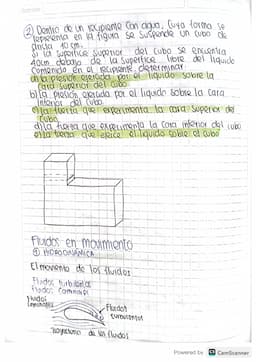 ② Dentro de un recipiente con agua, cuya forma se
representa en la figura se suspende un cubo de
arista 10 cm.
si la superficie superior del cubo se encuentra
40cm debajo de la superficie libre del liquido
contenido en el recipiente determinar:
a) la presion ejercida por el liquido sobre la
cara superior del cubo
b) la presion ejercida por el liquido sobre la cara
inferior del cubo.
c) la fuerza que experimenta la cara superior de
cubo.
d) la fuerza que experimenta la cara inferior del cubo
e) la fuerza que ejerce el liquido sobre el cubo
Fluidos en movimiento
① HIDRODINÁMICA
El movimiento de los fluidos
Fluidos turbulentos
Fluidos
Fluidos
laminares
Fluidos
turbulentos
de los fluidos
Powered by CS CamScanner